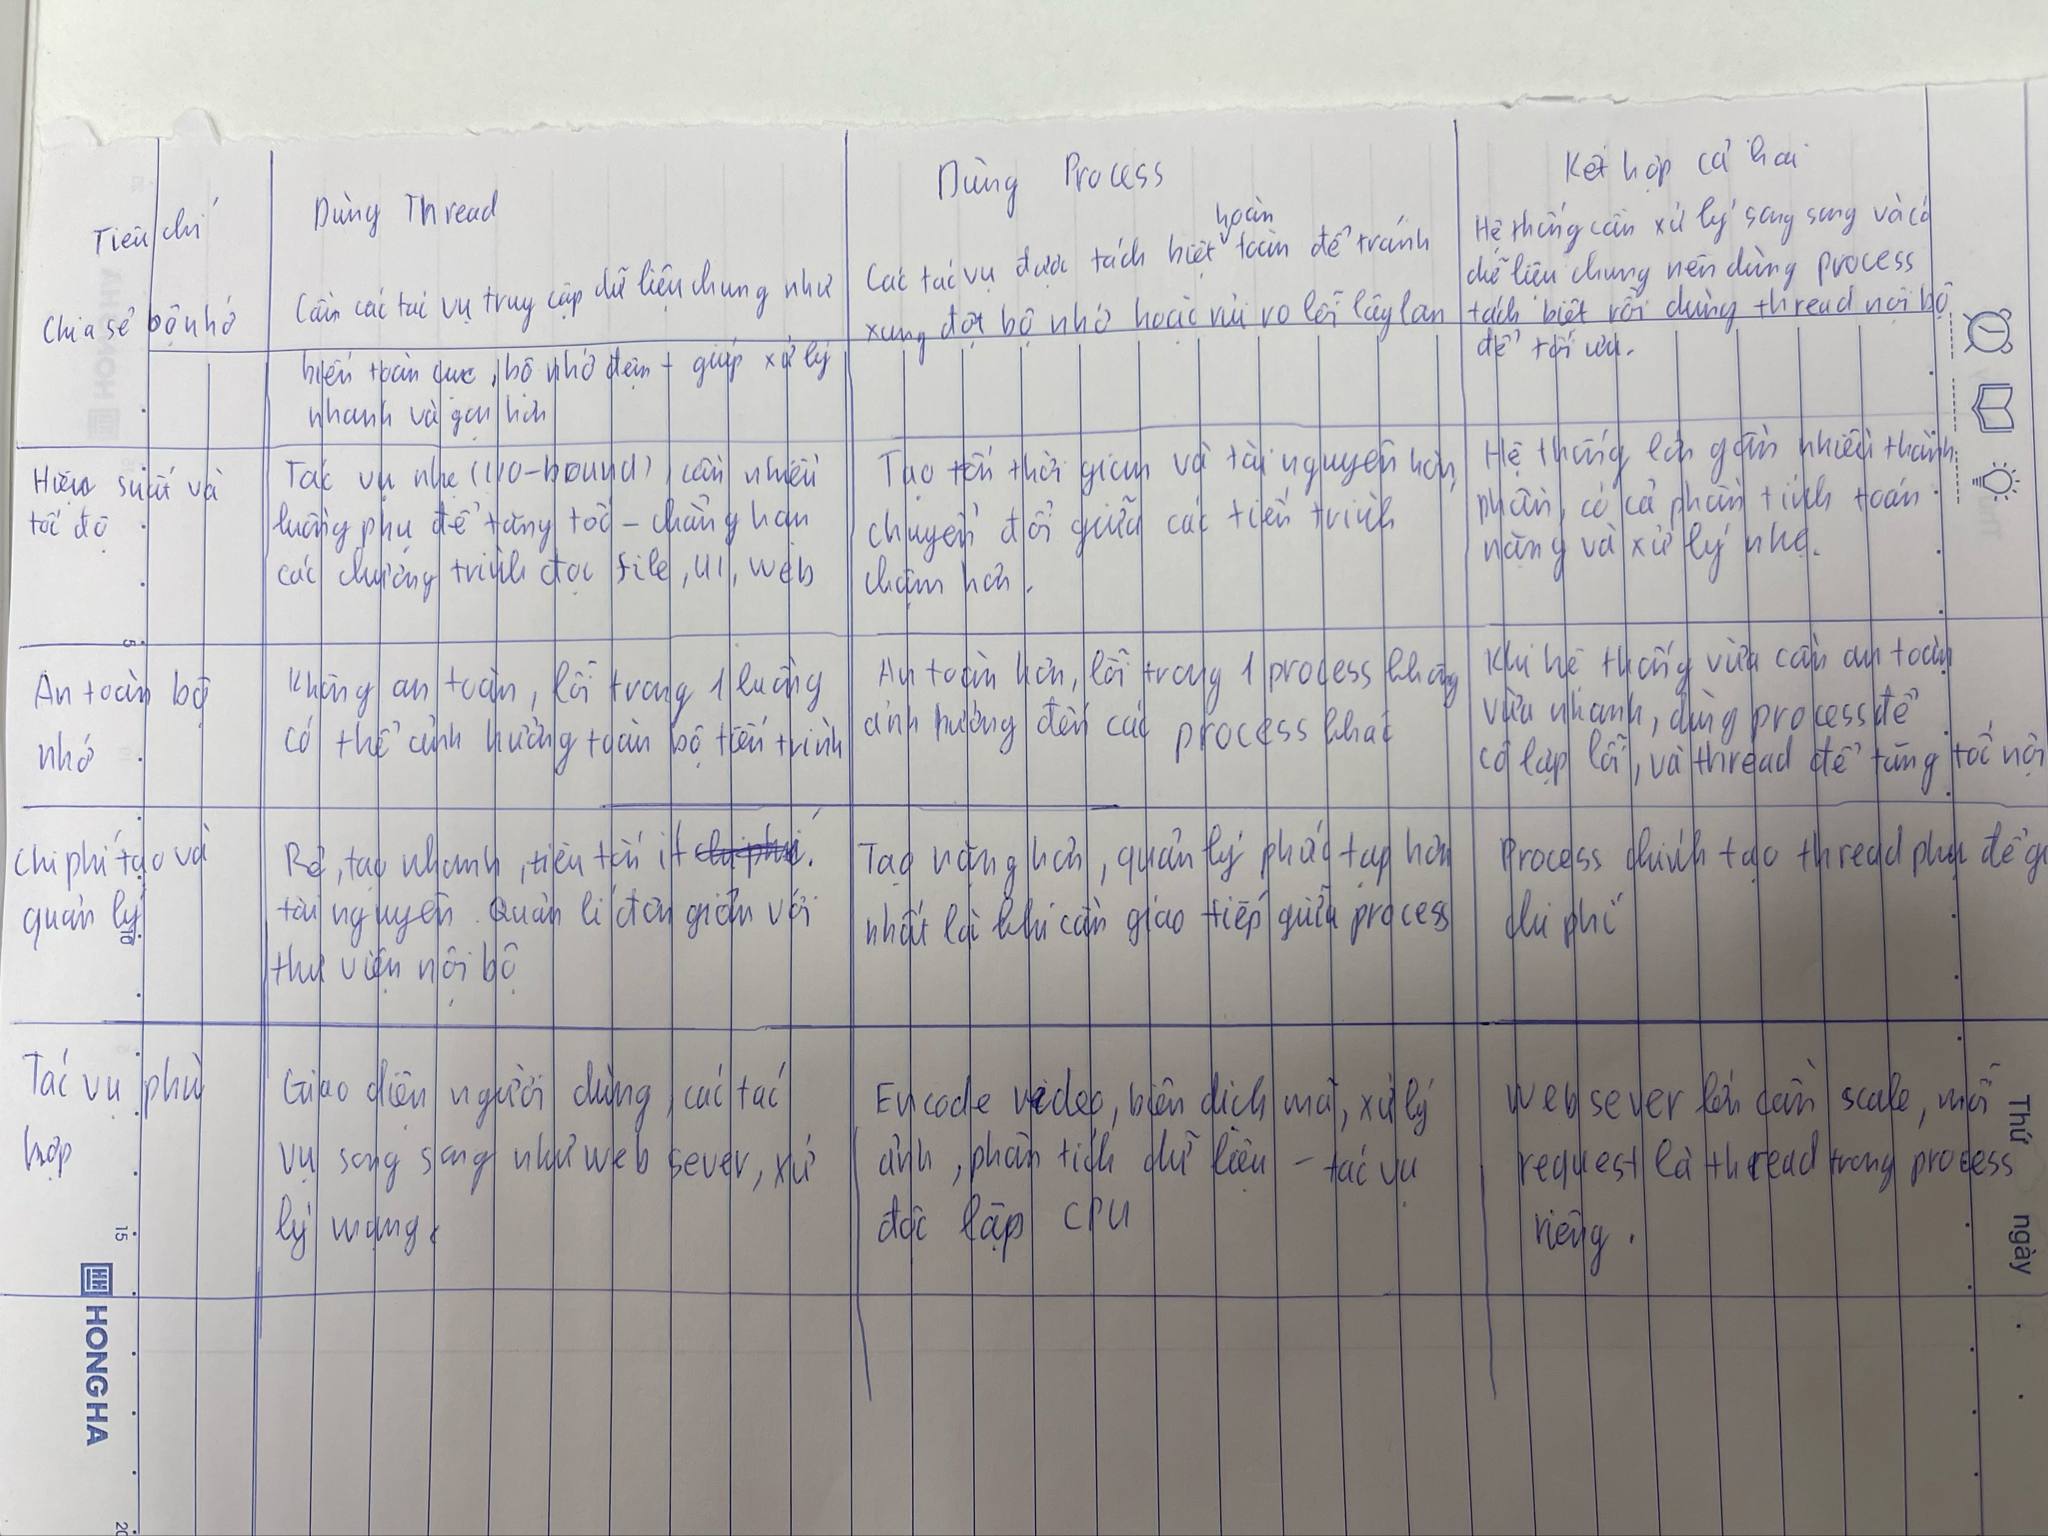 Tiêu chí
Dùng Thread
Dùng Process
Kết hợp cả hai
Chia sẻ bộ nhớ
Cần các tác vụ truy cập dữ liệu chung như
biến toàn cục, bộ nhớ đệm - giúp xử lý
nhanh và gọn hơn
hoàn
Các tác vụ được tách biệt toàn để tránh
xung đột bộ nhớ hoặc rủi ro lỗi lây lan
Hệ thống cần xử lý song song và có
dữ liệu chung nên dùng process
tách biệt rồi dùng thread nội bộ
để tối ưu.
Hiệu suất và
tốc độ
Tác vụ nhẹ (I/O-bound), cần nhiều
luồng phụ để tăng tốc - chẳng hạn
các chương trình đọc file, UI, web
Tạo tốn thời gian và tài nguyên hơn,
chuyển đổi giữa các tiến trình
chậm hơn.
Hệ thống lớn gồm nhiều thành
phần, có cả phần tính toán
nặng và xử lý nhẹ.
An toàn bộ
nhớ
Không an toàn, lỗi trong 1 luồng
có thể ảnh hưởng toàn bộ tiến trình
An toàn hơn, lỗi trong 1 process không
ảnh hưởng đến các process khác
Khi hệ thống vừa cần an toàn
vừa nhanh, dùng process để
cô lập lỗi, và thread để tăng tốc nội
Chi phí tạo và
quản lý
Rẻ, tạo nhanh, tiêu tốn ít
tài nguyên. Quản lí đơn giản với
thư viện nội bộ
Tạo nặng hơn, quản lý phức tạp hơn
nhất là khi cần giao tiếp giữa process
Process chính tạo thread phụ để
chi phí
Tác vụ phù
hợp
Giao diện người dùng, các tác
vụ song song như web sever, xử
lý mạng.
Encode video, biên dịch mã, xử lý
ảnh, phân tích dữ liệu - tác vụ
độc lập CPU
Web sever lớn cần scale, mỗi
request là thread trong process
riêng.
Thứ ngày
5
10
15
20
HONG HA